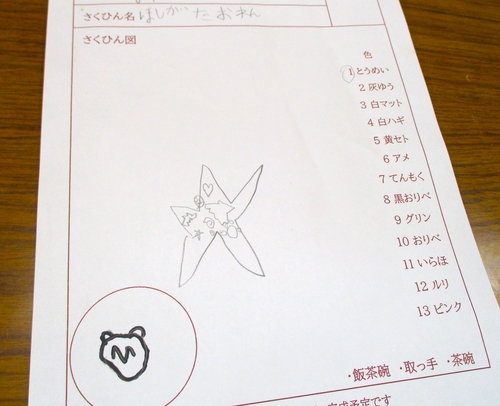 さくひん名 ほしがたおさん
さくひん図
色
1 とうめい
2 灰ゆう
3 白マット
4 白ハギ
5 黄セト
6 アメ
7 てんもく
8 黒おりべ
9 グリン
10 おりべ
11 いらほ
12 ルリ
13 ピンク
M
・飯茶碗 ・取っ手 ・茶碗
完成予定です